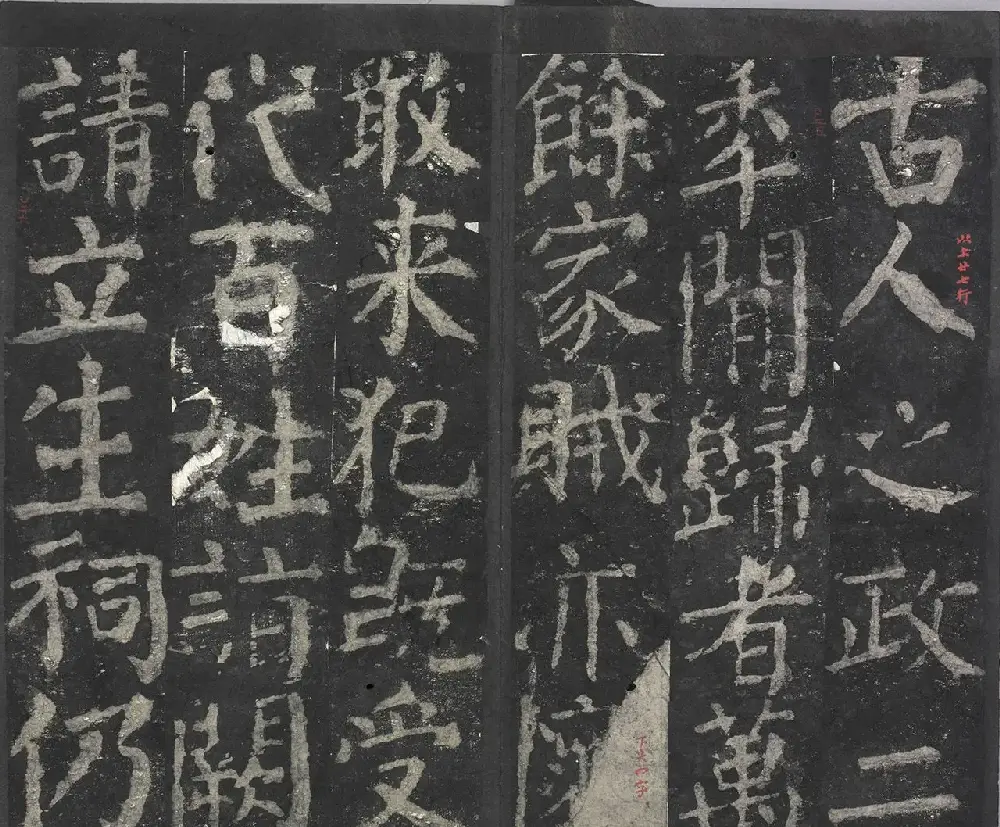 古人之政二
秊閒歸者萬
餘家賊亦
敢来犯既受
代百姓詣闕
請立生祠仍